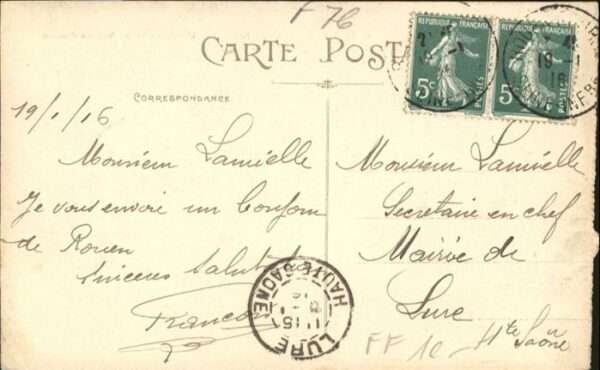 F 76
CARTE POSTALE
REPUBLIQUE FRANÇAISE
5c
POSTES
REPUBLIQUE FRANÇAISE
5c
POSTES
19-1
16
CORRESPONDANCE
19/1/16
Monsieur Lamielle
Je vous envoie un bonjour
de Rouen
Sinceres Salutat
Francon
Monsieur Lamielle
Secretaire en chef
Mairie de
Lure
Hte Saône
LURE
HAUTE SAONE
FF 10